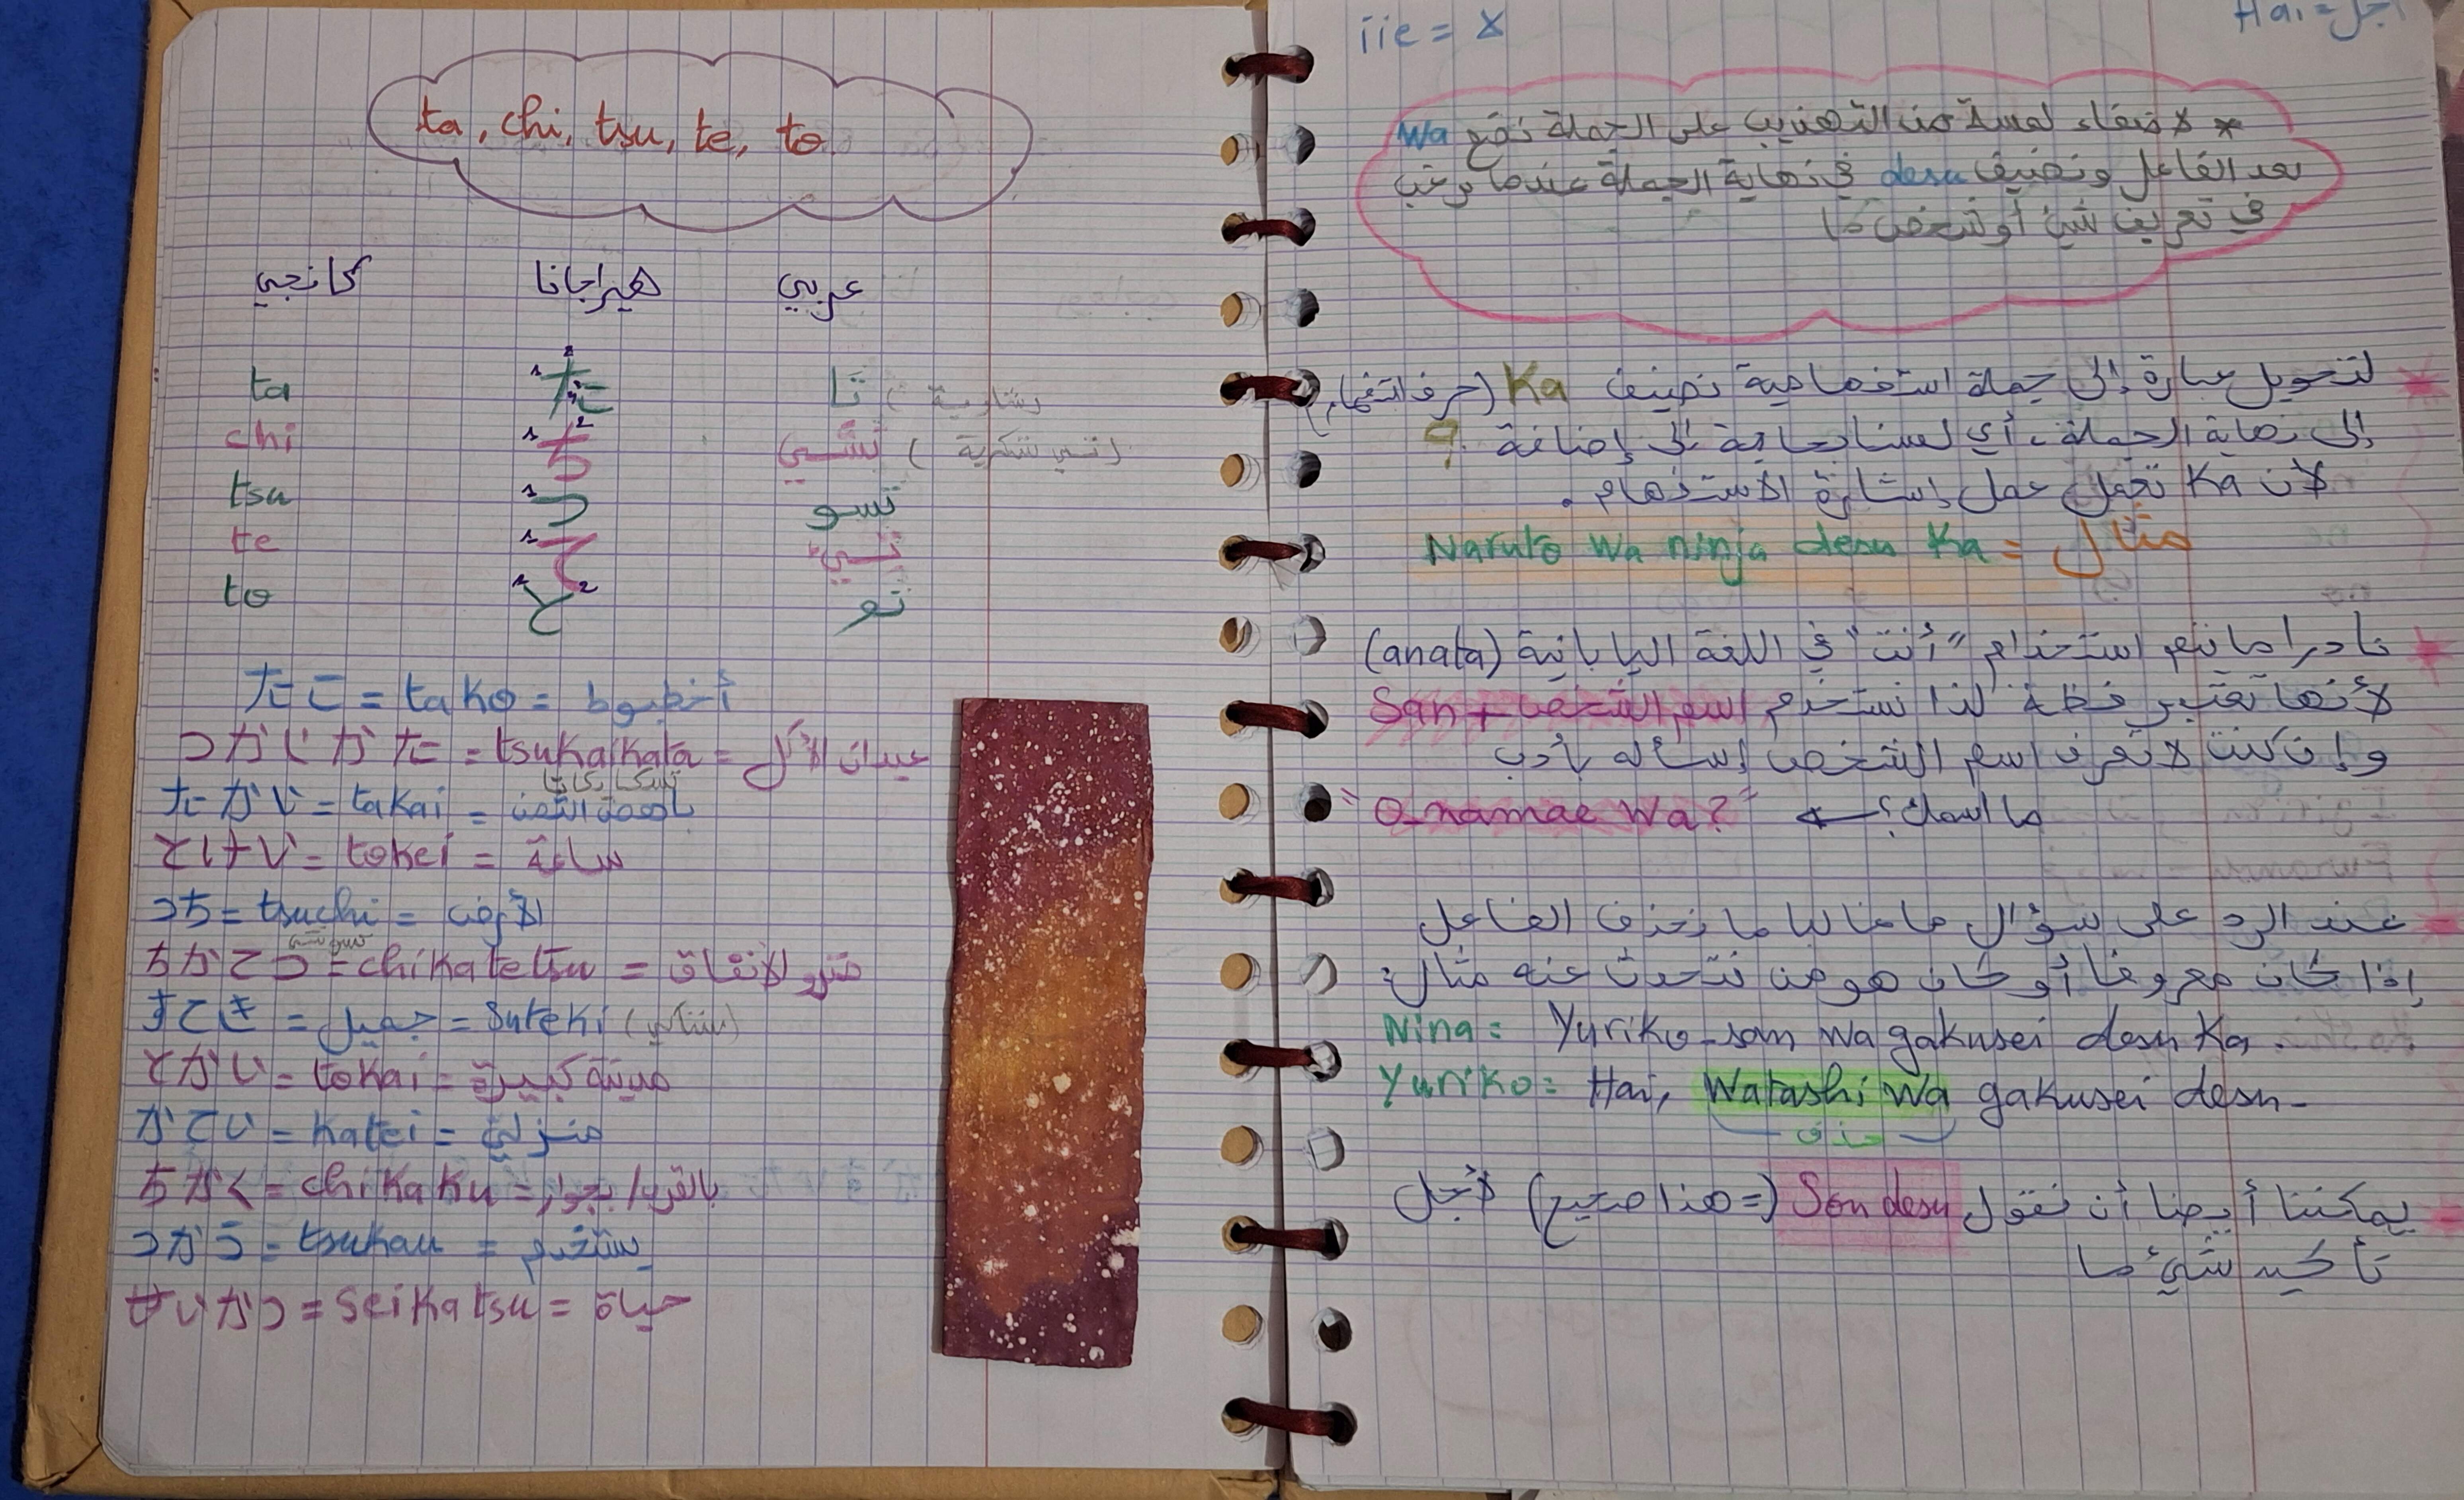 ta, chi, tsu, te, to
عربي هيراجانا كانجي
ta た تا
chi ち تشي (تسي شكرية)
tsu つ تسو
te て تيي
to と تو
たこ = tako = أخطبوط
つかいかた = tsukaikata = عيدان الأكل
たかい = takai = باهضة الثمن
とけい = tokei = ساعة
つち = tsuchi = الأرض
ちかてつ = chikatetsu = مترو الأنفاق
すてき = جميل = suteki
とかい = tokai = مدينة كبيرة
かてい = katei = منزلي
ちかく = chikaku = بالقرب / بجوار
つかう = tsukau = يستخدم
せいかつ = seikatsu = حياة
iie = لا
Hai = أجل
* لاضفاء لمسة من التهذيب على الجملة نضع wa
بعد الفاعل ونضيف desu في نهاية الجملة عندما نرغب
في تعريف شيئ أو شخص ما
لتحويل عبارة إلى جملة استفهامية نضيف Ka (حرف استفهام)
إلى نهاية الجملة، أي لسنا بحاجة إلى إضافة ؟
لأن Ka تعمل عمل إشارة الاستفهام.
مثال = Naruto wa ninja desu Ka
نادرا ما يتم استخدام "أنت" في اللغة اليابانية (anata)
لأنها تعتبر فظة لذا نستخدم اسم الشخص + San
وإن كنت لا تعرف اسم الشخص إسأله بأدب
ما اسمك؟ ← "O-namae wa?"
عند الرد على سؤال ما غالبا ما نحذف الفاعل
إذا كان معروفا أو كان هو من نتحدث عنه مثال:
Nina: Yuriko-san wa gakusei desu Ka.
Yuriko: Hai, Watashi wa gakusei desu-
حذف
يمكننا أيضا أن نقول Sou desu (= هذا صحيح) لأجل
تأكيد شيئ ما